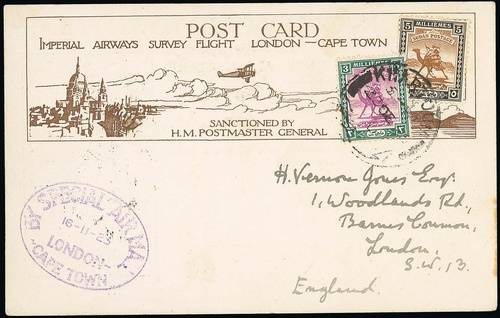 POST CARD
IMPERIAL AIRWAYS SURVEY FLIGHT LONDON — CAPE TOWN
SANCTIONED BY
H.M. POSTMASTER GENERAL
5 MILLIEMES 5
SUDAN POSTAGE
3 MILLIEMES
BY SPECIAL AIR MAIL
16-11-25
LONDON-
-CAPE TOWN
H. Vernon Jones Esq.
1, Woodlands Rd,
Barnes Common,
London,
S.W. 13.
England.